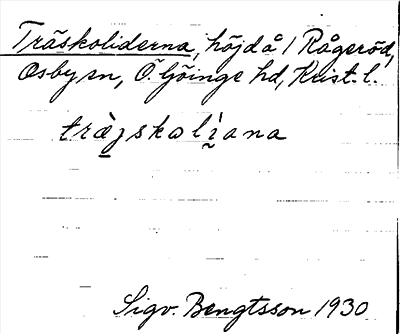 Träskoliderna, höjd å 1 Rågeröd,
Osby sn, Ö. Göinge hd, Krist. l.
trä̀jskolíana
Sigv. Bengtsson 1930